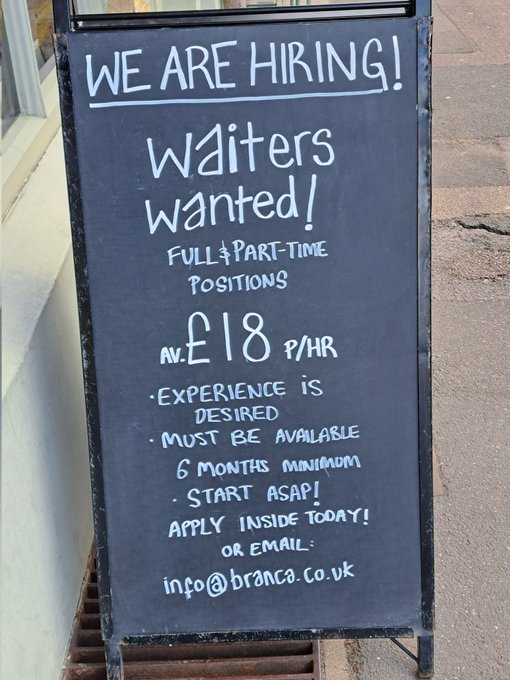 WE ARE HIRING!
waiters
wanted!
FULL & PART-TIME
POSITIONS
AV. £18 P/HR
· EXPERIENCE iS
DESIRED
· MUST BE AVAILABLE
6 MONTHS MINIMUM
· START ASAP!
APPLY INSIDE TODAY!
OR EMAIL:
info@branca.co.uk